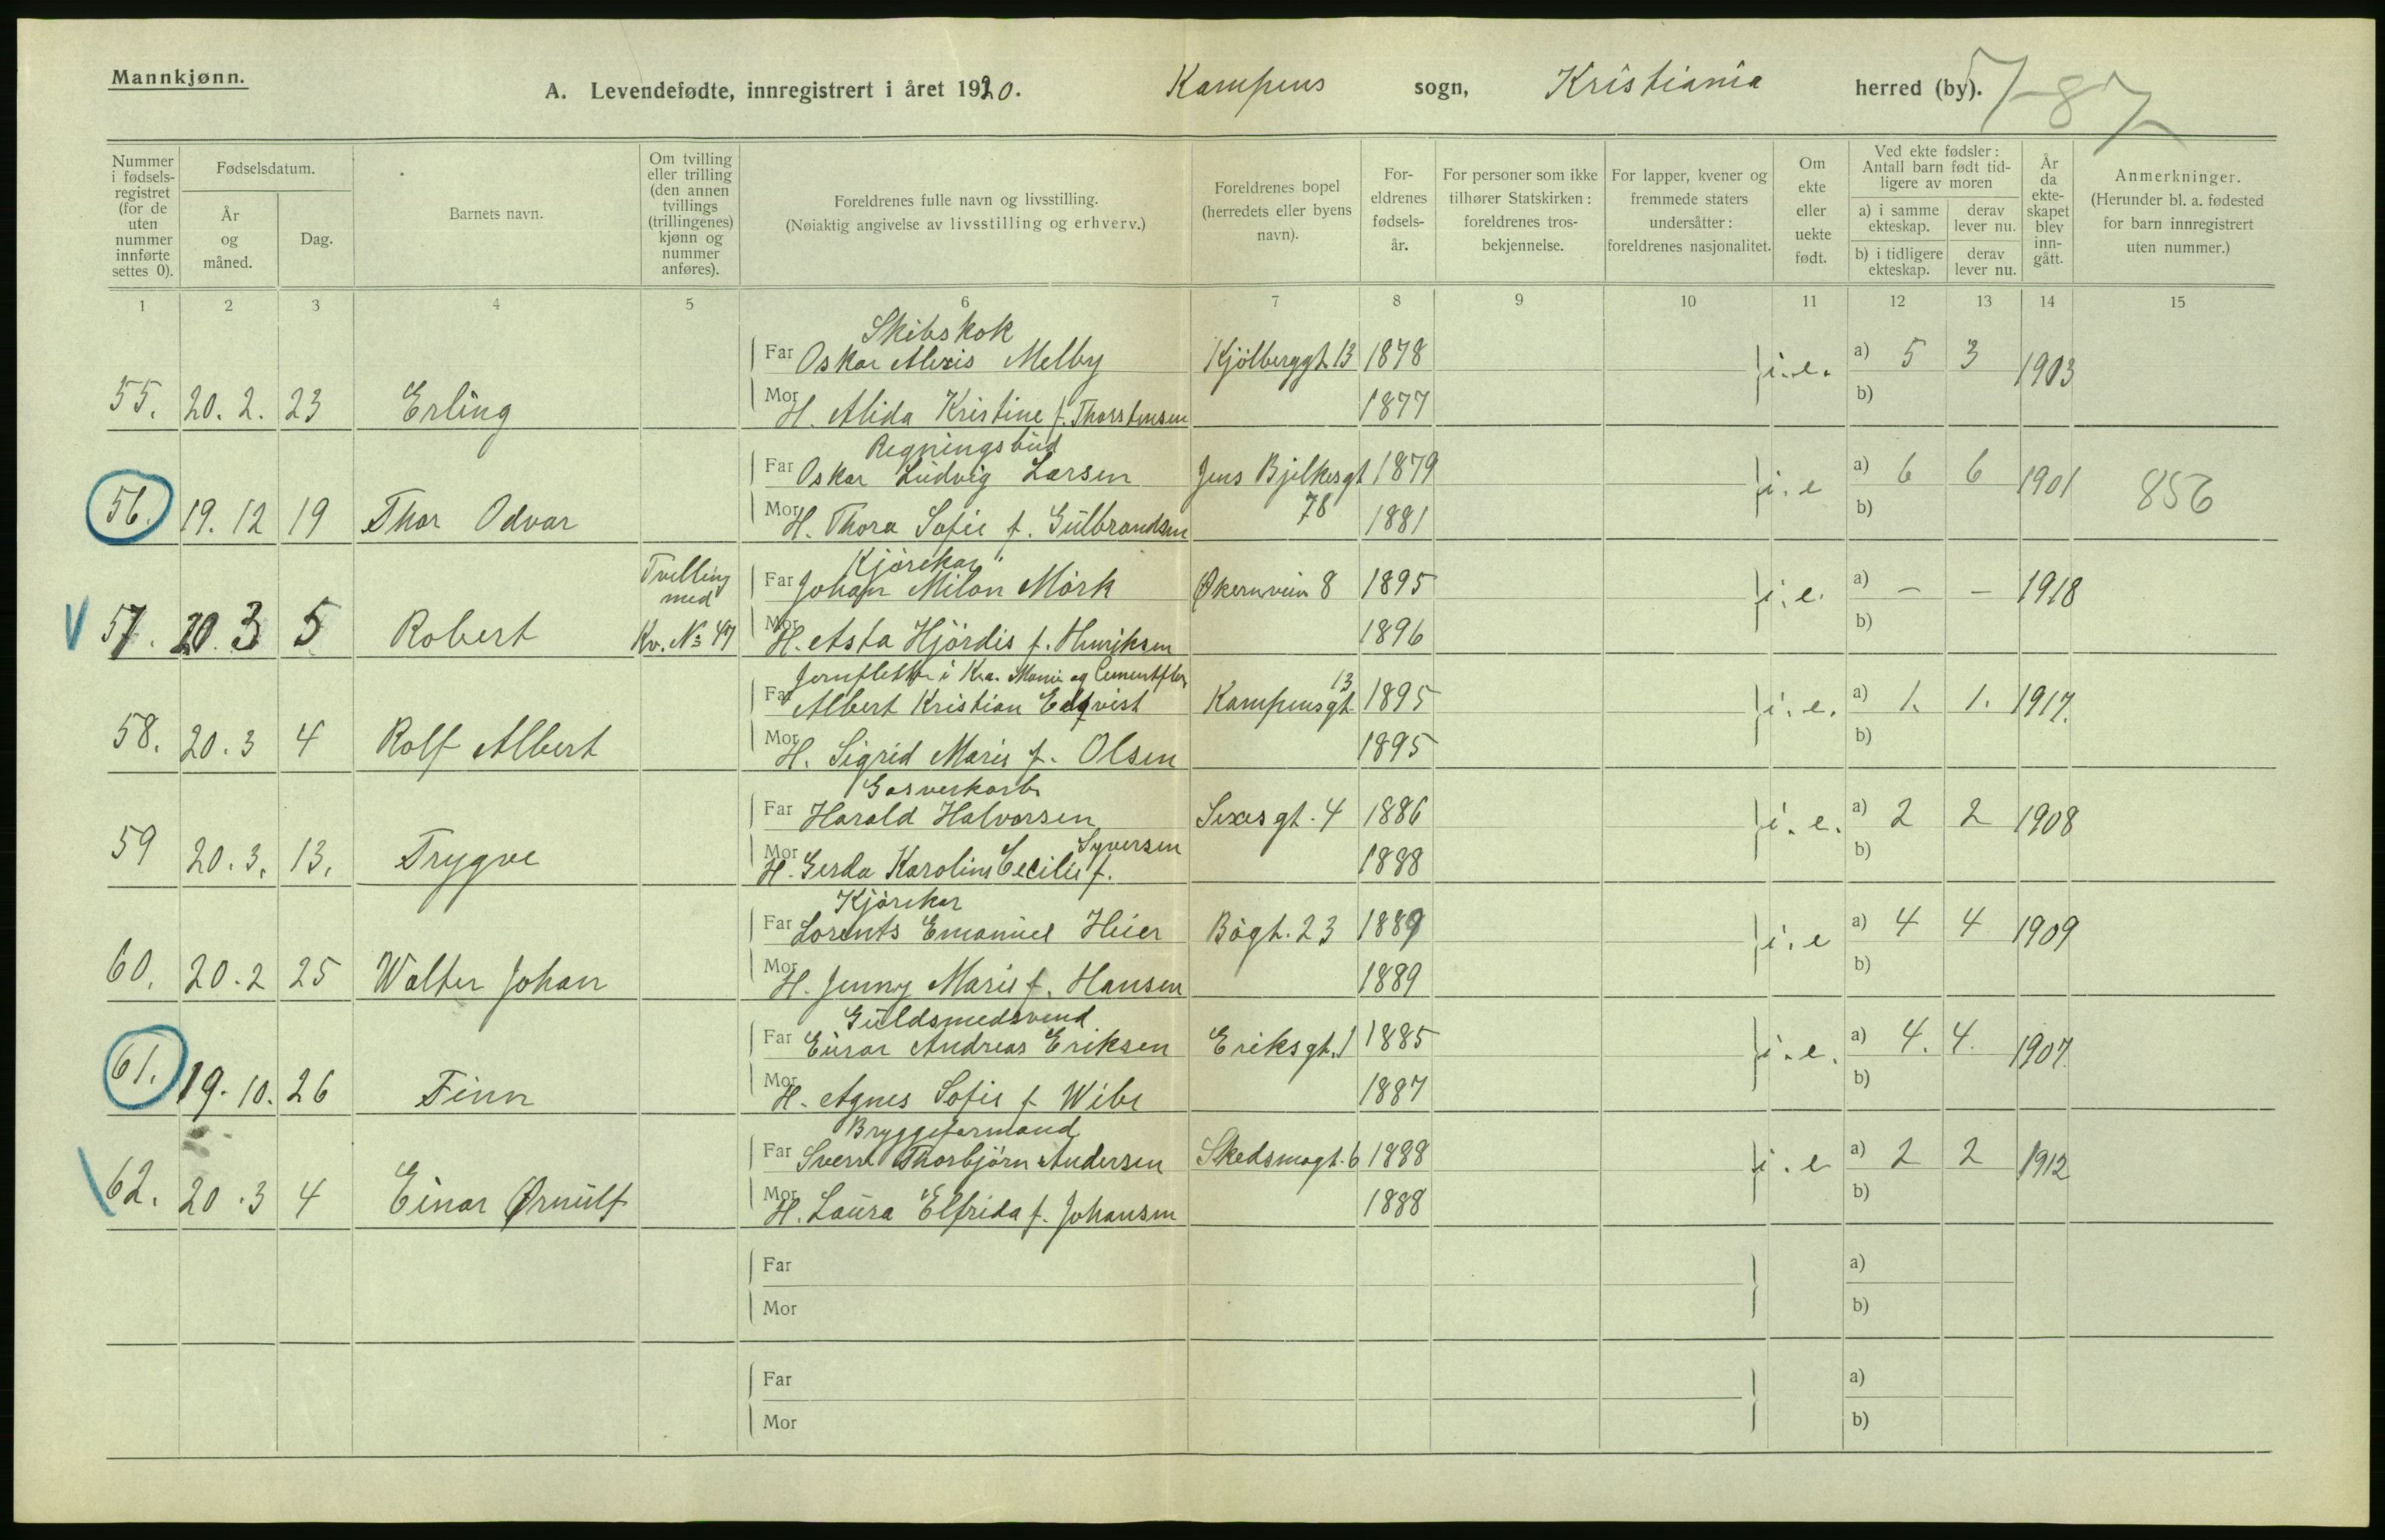 Mannkjønn.
A. Levendefødte, innregistrert i året 1920. Kampens sogn, Kristiania herred (by).
Nummer i fødsels-registret (for de uten nummer innførte settes 0).
Fødselsdatum.
År og måned.
Dag.
Barnets navn.
Om tvilling eller trilling (den annen tvillings (trillingenes) kjønn og nummer anføres).
Foreldrenes fulle navn og livsstilling.
(Nøiaktig angivelse av livsstilling og erhverv.)
Foreldrenes bopel (herredets eller byens navn).
For-eldrenes fødsels-år.
For personer som ikke tilhører Statskirken: foreldrenes tros-bekjennelse.
For lapper, kvener og fremmede staters undersåtter: foreldrenes nasjonalitet.
Om ekte eller uekte født.
Ved ekte fødsler: Antall barn født tid-ligere av moren
a) i samme ekteskap.
derav lever nu.
b) i tidligere ekteskap.
derav lever nu.
År da ekte-skapet blev inn-gått.
Anmerkninger.
(Herunder bl. a. fødested for barn innregistrert uten nummer.)
1 2 3 4 5 6 7 8 9 10 11 12 13 14 15
Skibskok
Far Oskar Alexis Melby Kjölberggt. 13 1878 i.e. a) 5 3 1903
55. 20. 2. 23 Erling
Mor H. Alida Kristine f. Thorstensen 1877 b)
Regningsbud
Far Oskar Ludvig Larsen Jens Bjelkesgt 78 1879 i.e a) 6 6 1901 856
56. 19. 12 19 Thor Odvar
Mor H. Thora Sofie f. Gulbrandsen 1881 b)
Kjörekar
Tvilling med Kv. No 47
Far Johan Milon Mörk Økernveien 8 1895 i.e. a) - - 1918
57. 20. 3 5 Robert
Mor H. Asta Hjördis f. Henriksen 1896 b)
Far Albert Kristian Kampensgt 13 1895 i.e. a) 1. 1. 1917.
58. 20. 3 4 Rolf Albert
Mor H. Sigrid Marie f. Olsen 1895 b)
Gasverkarb.
Far Harald Halvorsen Sexesgt. 4 1886 i.e. a) 2 2 1908
59 20. 3. 13. Trygve
Mor H. Gerda Karoline Cecilie f. Syversen 1888 b)
Kjörekar
Far Lorents Emanuel Heier Bögt. 23 1889 i.e a) 4 4 1909
60. 20. 2 25 Walter Johan
Mor H. Jenny Marie f. Hansen 1889 b)
Guldsmedsvend
Far Einar Andreas Eriksen Eriksgt. 1 1885 i.e. a) 4. 4. 1907.
61. 19. 10. 26 Finn
Mor H. Agnes Sofie f. Wibe 1887 b)
Bryggeformand
Far Sverre Thorbjörn Andersen Skedsmogt. 6 1888 i.e a) 2 2 1912
62. 20. 3 4 Einar Ørnulf
Mor H. Laura Elfrida f. Johansen 1888 b)
Far a)
Mor b)
Far a)
Mor b)